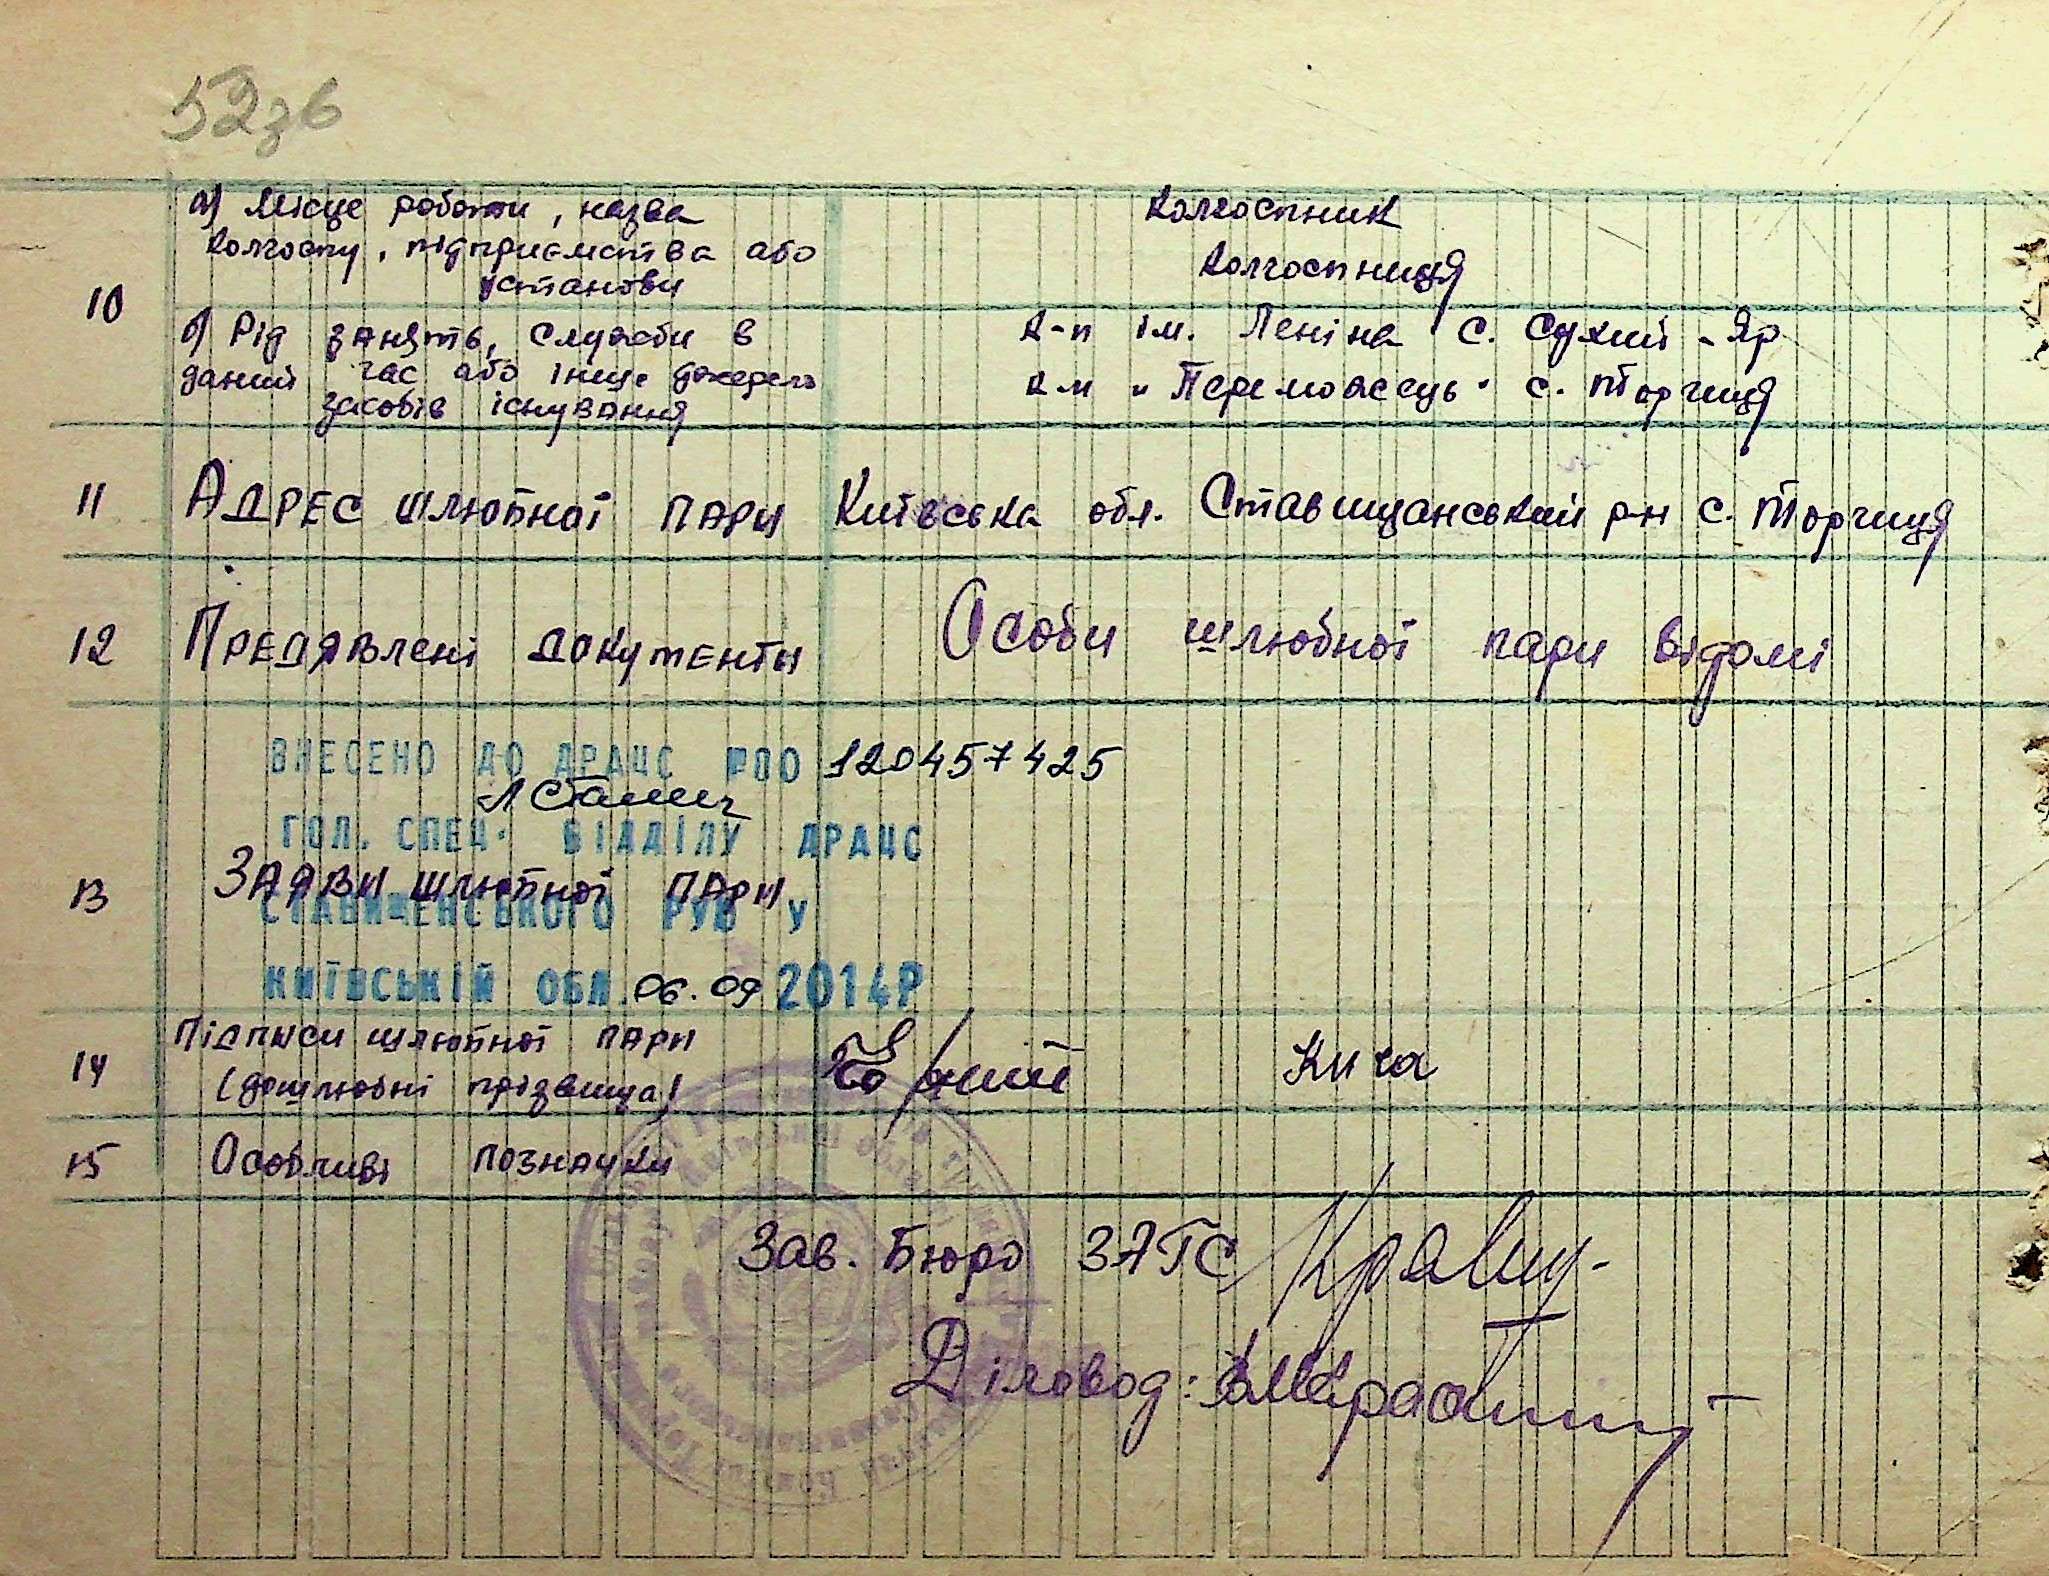 52зв
а) Місце роботи, назва
колгоспу, підприємства або
установи
Колгоспник
Колгоспниця
10
б) Рід занять, служби в
даний час або інше джерело
засобів існування
к-п ім. Леніна с. Сухий-Яр
к-п "Переможець" с. Торчиця
11 Адрес шлюбної пари Київська обл. Ставищанський р-н с. Торчиця
12 Предявлені документи Особи шлюбної пари відомі
ВНЕСЕНО ДО ДРАЦС 120457425
ГОЛ. СПЕЦ. ВІДДІЛУ ДРАЦС
13 Заяви шлюбної пари
СТАВИЩЕНСЬКОГО РУЮ У
КИЇВСЬКІЙ ОБЛ. 06.09 2014Р
14 Підписи шлюбної пари
(дошлюбні прізвища)
Кича
15 Особливі позначки
Зав. Бюро ЗАГС
Діловод: